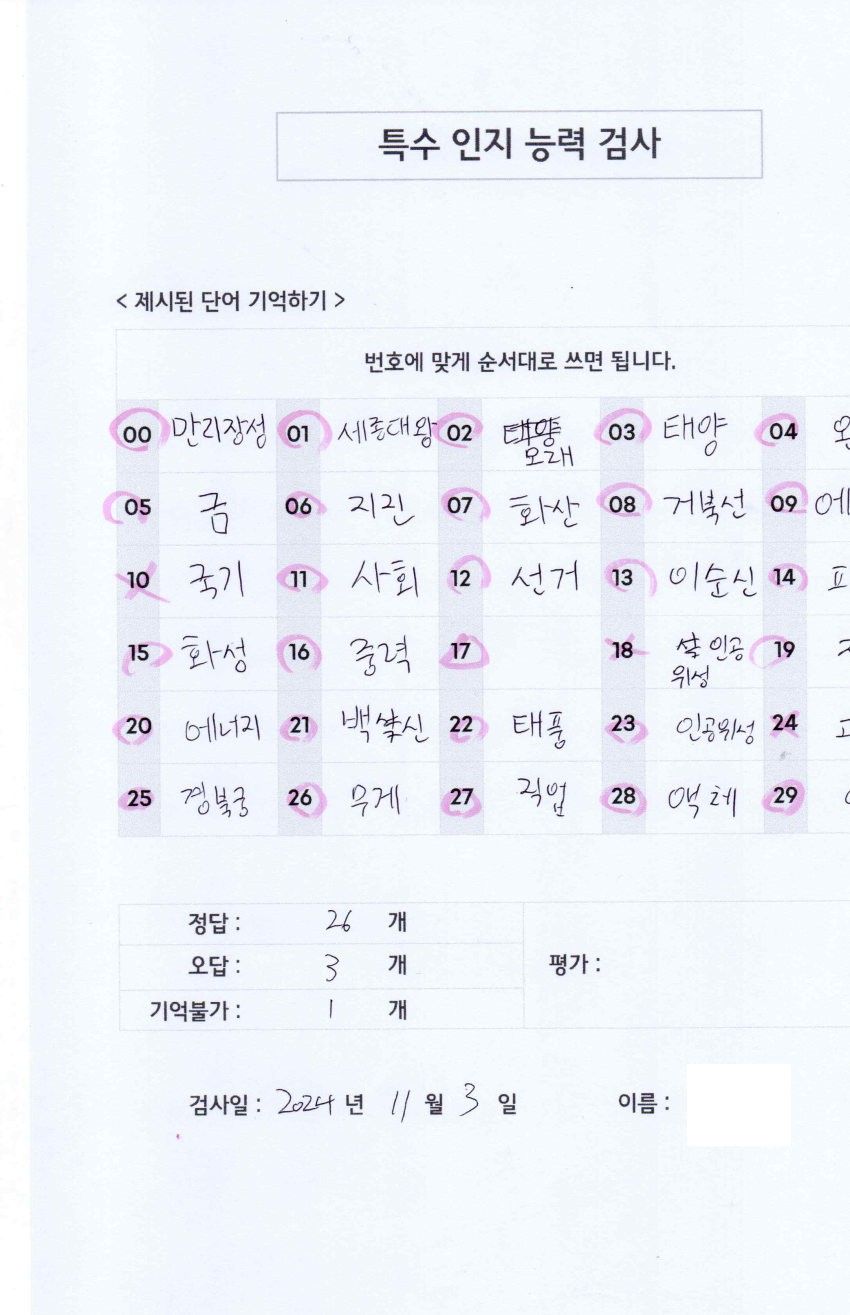 특수 인지 능력 검사
< 제시된 단어 기억하기 >
번호에 맞게 순서대로 쓰면 됩니다.
00 만리장성 01 세종대왕 02 모래 03 태양 04
05 금 06 지진 07 화산 08 거북선 09 에
10 국기 11 사회 12 선거 13 이순신 14
15 화성 16 중력 17 18 인공 19
위성
20 에너지 21 백신 22 태풍 23 인공위성 24
25 경복궁 26 무게 27 직업 28 액체 29
정답 : 26 개
오답 : 3 개
평가 :
기억불가 : 1 개
검사일 : 2024 년 11 월 3 일 이름 :